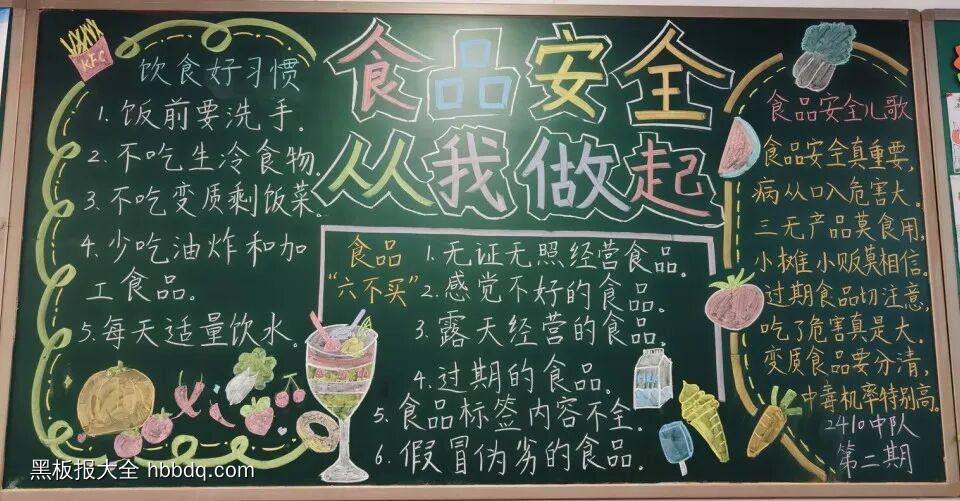 食品安全
从我做起
KFC
饮食好习惯
1.饭前要洗手。
2.不吃生冷食物。
3.不吃变质剩饭菜。
4.少吃油炸和加
工食品。
5.每天适量饮水。
食品
“六不买”
1.无证无照经营食品。
2.感觉不好的食品。
3.露天经营的食品。
4.过期的食品。
5.食品标签内容不全。
6.假冒伪劣的食品。
食品安全儿歌
食品安全真重要,
病从口入危害大。
三无产品莫食用,
小摊小贩莫相信。
过期食品切注意,
吃了危害真是大。
变质食品要分清,
中毒机率特别高。
2410中队
第二期
黑板报大全 hbbdq.com